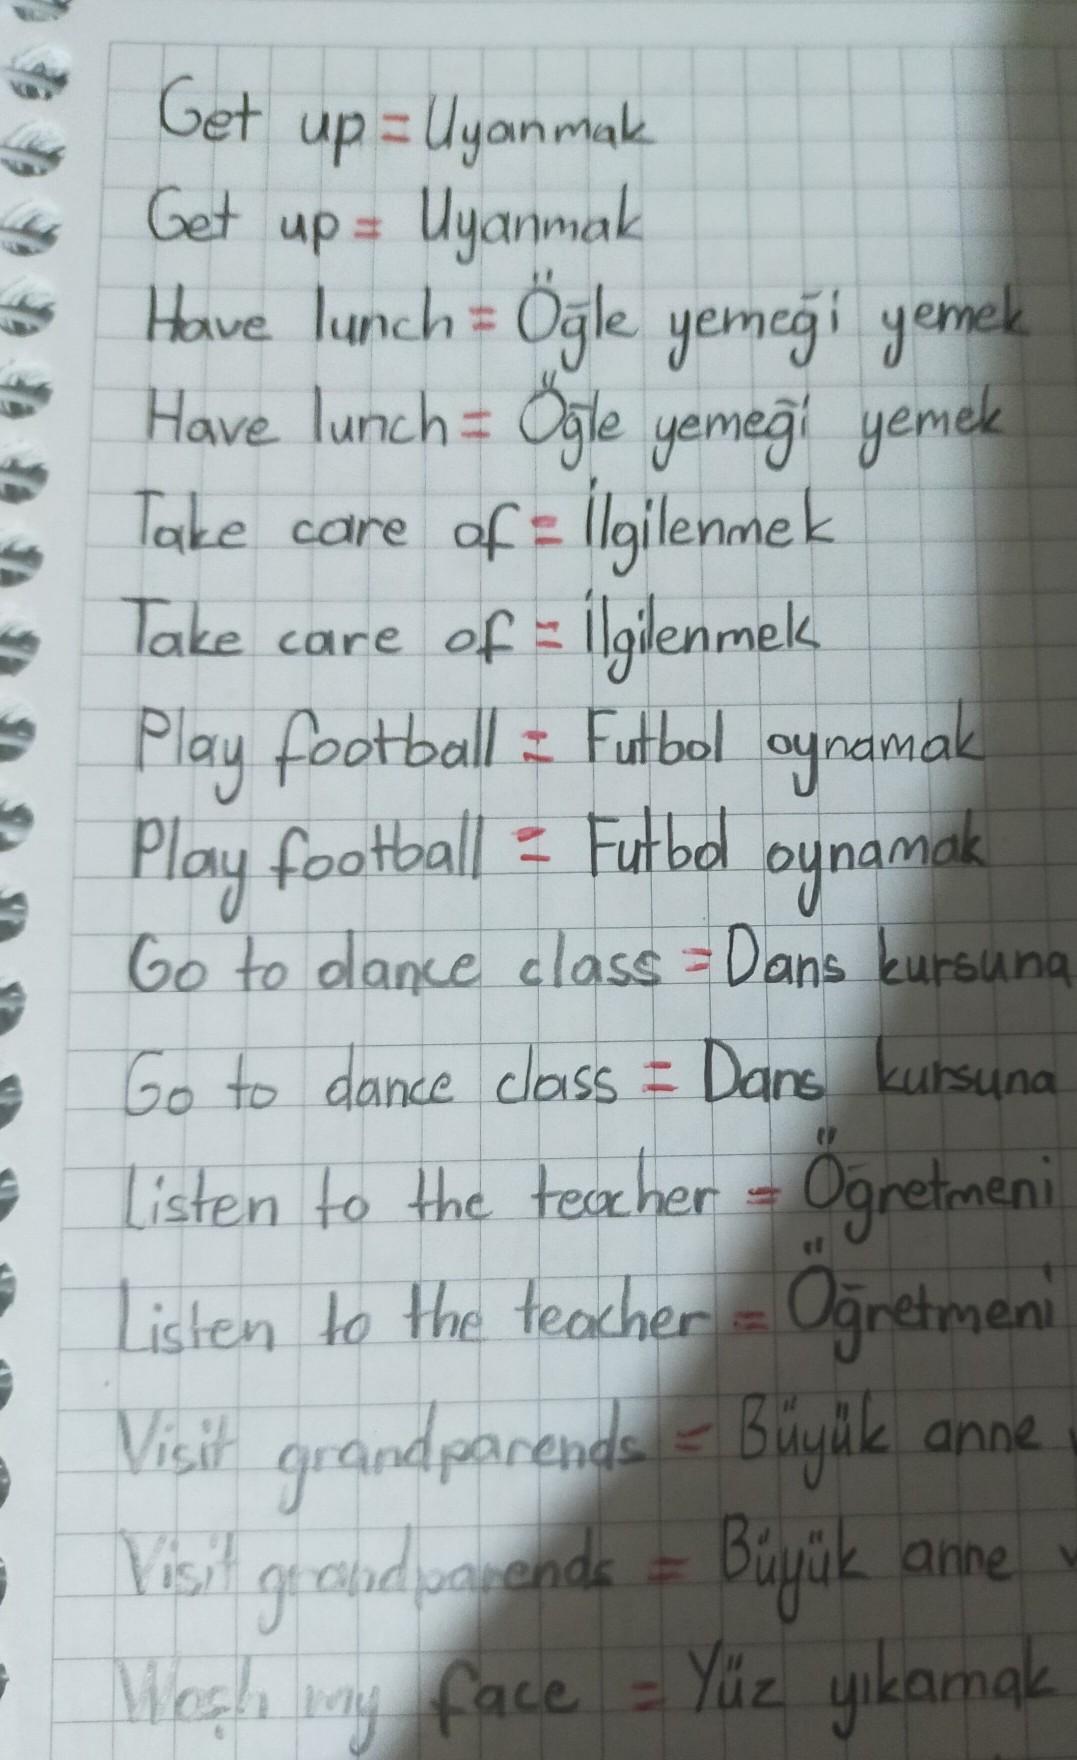 Get up = Uyanmak
Get up = Uyanmak
Have lunch = Öğle yemeği yemek
Have lunch = Öğle yemeği yemek
Take care of = İlgilenmek
Take care of = İlgilenmek
Play football = Futbol oynamak
Play football = Futbol oynamak
Go to dance class = Dans kursuna
Go to dance class = Dans kursuna
Listen to the teacher = Öğretmeni
Listen to the teacher = Öğretmeni
Visit grandparends = Büyük anne
Visit grandparends = Büyük anne
Wash my face = Yüz yıkamak